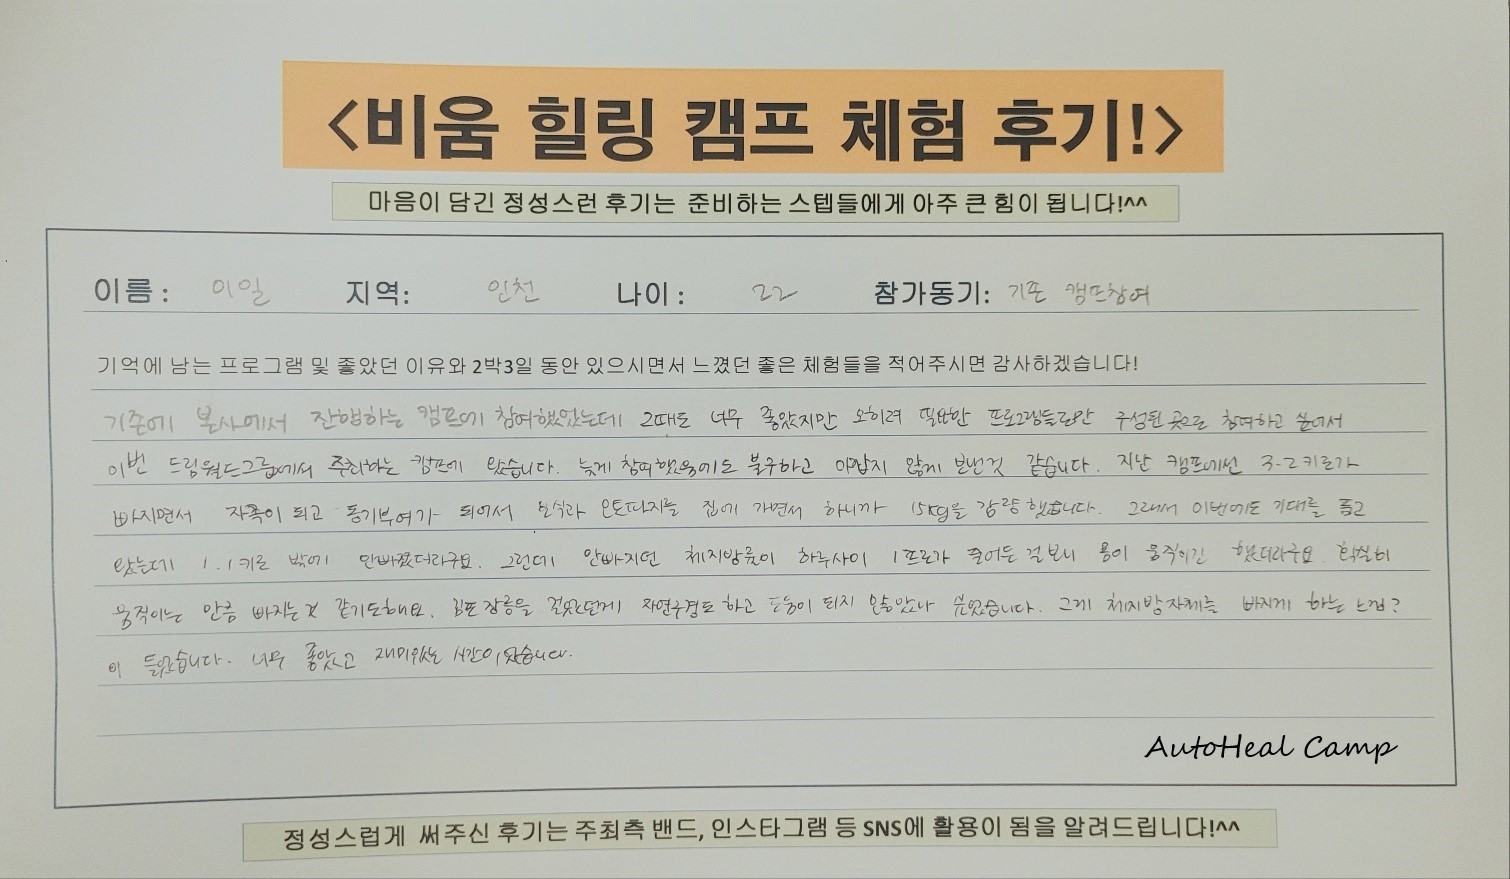 <비움 힐링 캠프 체험 후기!>
마음이 담긴 정성스런 후기는 준비하는 스텝들에게 아주 큰 힘이 됩니다!^^
이름 : 이일 지역: 인천 나이 : 22 참가동기: 기존 캠프참여
기억에 남는 프로그램 및 좋았던 이유와 2박3일 동안 있으시면서 느꼈던 좋은 체험들을 적어주시면 감사하겠습니다!
기존에 본사에서 진행하는 캠프에 참여했었는데 그때도 너무 좋았지만 오히려 필요한 프로그램들로만 구성된 곳으로 참여하고 싶어서
이번 드림월드그룹에서 주최하는 캠프에 왔습니다. 늦게 참여했음에도 불구하고 아깝지 않게 보낸것 같습니다. 지난 캠프에선 3.2키로가
빠지면서 자극이 되고 동기부여가 되어서 단식과 온토따지를 집에 가면서 하니까 15kg을 감량했습니다. 그래서 이번에도 기대를 품고
왔는데 1.1키로 밖에 안빠졌더라구요. 그런데 안빠지던 체지방률이 하루사이 1프로가 줄어든 걸보니 몸이 움직이긴 했더라구요. 확실히
움직이는 만큼 빠지는것 같기도해요. 김포 장릉을 걸었는데 자연구경도 하고 운동이 되지 않았나 싶었습니다. 그게 체지방자체를 빠지게 하는 느낌?
이 들었습니다. 너무 좋았고 재미있는 시간이었습니다.
AutoHeal Camp
정성스럽게 써주신 후기는 주최측 밴드, 인스타그램 등 SNS에 활용이 됨을 알려드립니다!^^